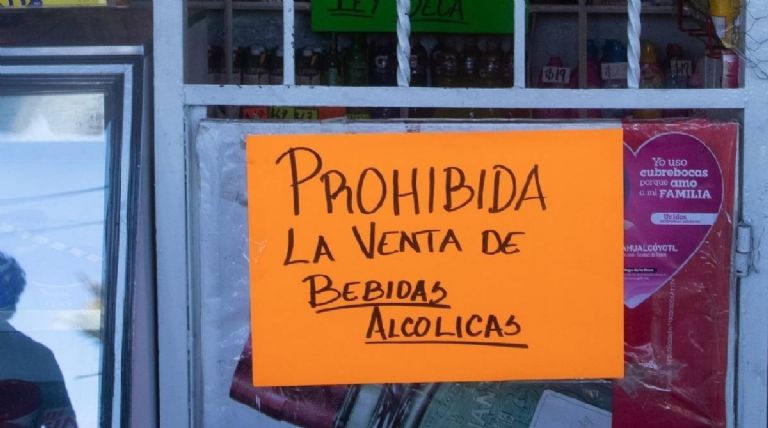 LEY SECA
$19
PROHIBIDA
LA VENTA DE
BEBIDAS
ALCOLICAS
Yo uso
cubrebocas
porque amo
a mi FAMILIA
Unidos
AHUALCÓYOTL